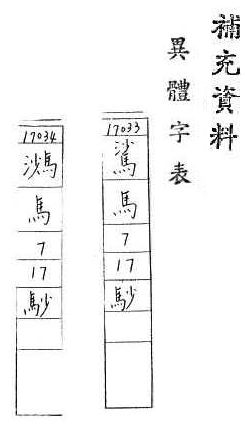 補充資料
異體字表
17033
馬
7
17
17034
馬
7
17